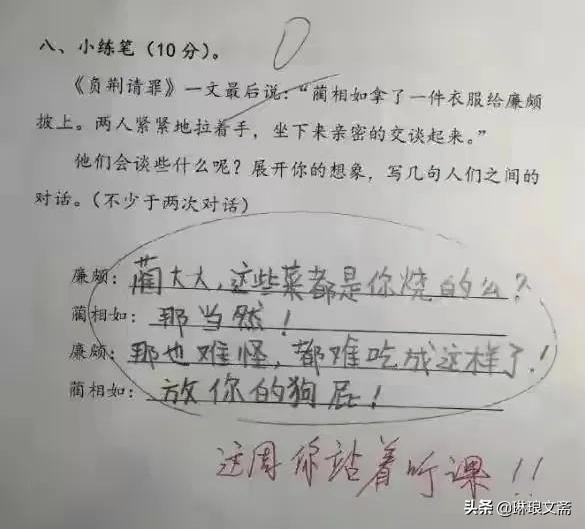 八、小练笔（10分）。
0
《负荆请罪》一文最后说：“蔺相如拿了一件衣服给廉颇
披上。两人紧紧地拉着手，坐下来亲密的交谈起来。”
他们会谈些什么呢？展开你的想象，写几句人们之间的
对话。（不少于两次对话）
廉颇：蔺大大，这些菜都是你烧的么？
蔺相如：那当然！
廉颇：那也难怪，都难吃成这样了！
蔺相如：放你的狗屁！
这周你站着听课！！
头条 @琳琅文斋